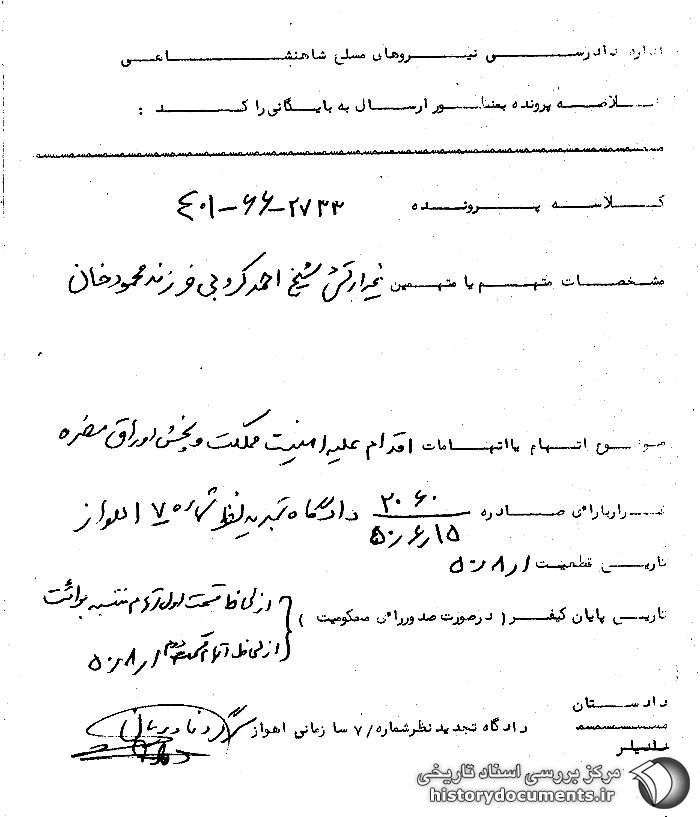 اداره دادرسی نیروهای مسلح شاهنشاهی
خلاصه پرونده بمنظور ارسال به بایگانی راکد :
کلاسه پرونده ۲۷۳۳-۶۶-۴۰۱
مشخصات متهم یا متهمین غیر ارتشی شیخ احمد کروبی فرزند محمود خان
موضوع اتهام یا اتهامات اقدام علیه امنیت مملکت و پخش اوراق مضره
قرار یا رای صادره ۲۰۶۰ دادگاه تجدیدنظر شماره ۷ اهواز
۵۰٫۶٫۱۵
تاریخ قطعیت ۵۰٫۸٫۱
تاریخ پایان کیفر ( درصورت صدور رای محکومیت ) از لحاظ قسمت اول اتهام منتسبه برائت
از لحاظ اتهام قسمت دوم ۵۰٫۸٫۱
دادستان
دادگاه تجدید نظر شماره /۷ سازمانی اهواز سرگرد
مرکز بررسی اسناد تاریخی
historydocuments.ir